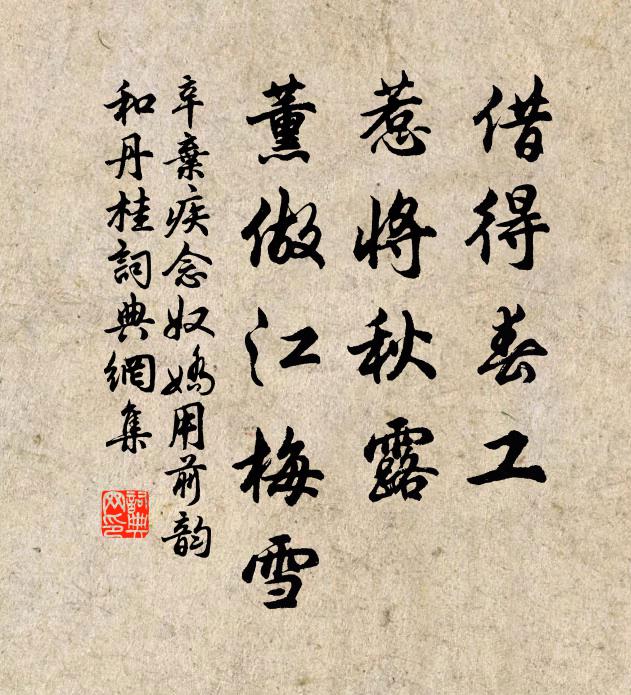 借得春工
惹將秋露
薰做江梅雪
辛棄疾念奴嬌用前韵
和丹桂詞典網集
詞典
网印